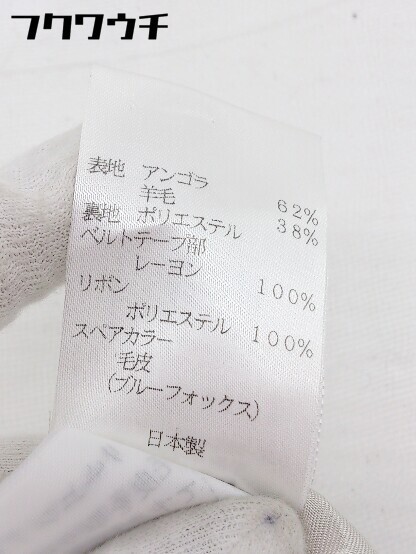 フクワウチ
表地 アンゴラ 62%
羊毛 38%
裏地 ポリエステル
ベルトテープ部
レーヨン 100%
リボン
ポリエステル 100%
スペアカラー
毛皮
(ブルーフォックス)
日本製